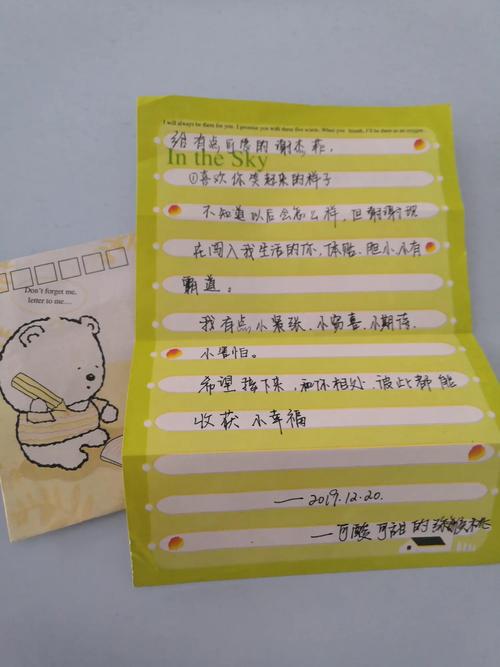 I will always be there for you. I promise you with these five words. When you breath, I'll be there as an oxygen.
给有点可爱的谢杰
In the Sky
①喜欢你笑起来的样子
不知道以后会怎么样,但谢谢现
在闯入我生活的你,体贴、胆小、有
霸道。
我有点小紧张、小窃喜、小期待、
小害怕。
希望接下来,和你相处、彼此都能
收获 小幸福
——2019.12.20.
—可酸可甜的猕猴桃
Don't forget me,
letter to me....